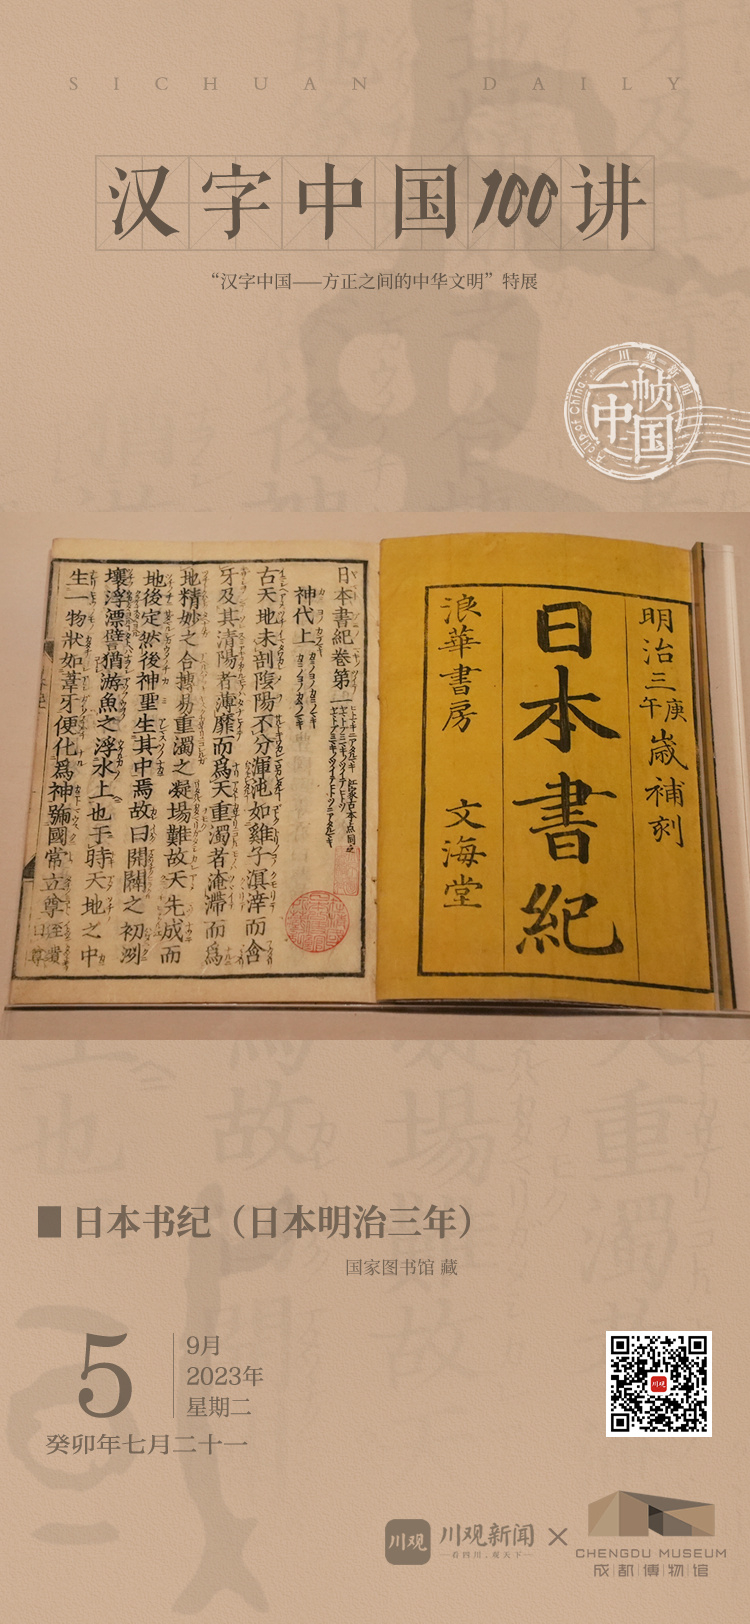 SICHUAN DAILY
汉字中国100讲
“汉字中国——方正之间的中华文明”特展
川观新闻
一帧
中国
A clip of China
明治三庚午歲補刻
日本書紀
浪華書房 文海堂
日本書紀卷第一
神代上
古天地未剖陰陽不分渾沌如雞子溟涬而含
牙及其清陽者薄靡而爲天重濁者淹滯而爲
地精妙之合摶易重濁之凝場難故天先成而
地後定然後神聖生其中焉故曰開闢之初洌
壤浮漂譬猶游魚之浮水上也于時天地之中
生一物狀如葦牙便化爲神號國常立尊
日本书纪（日本明治三年）
国家图书馆 藏
5
9月
2023年
星期二
癸卯年七月二十一
川观
川观新闻
看四川，观天下
×
CHENGDU MUSEUM
成都博物馆
川观